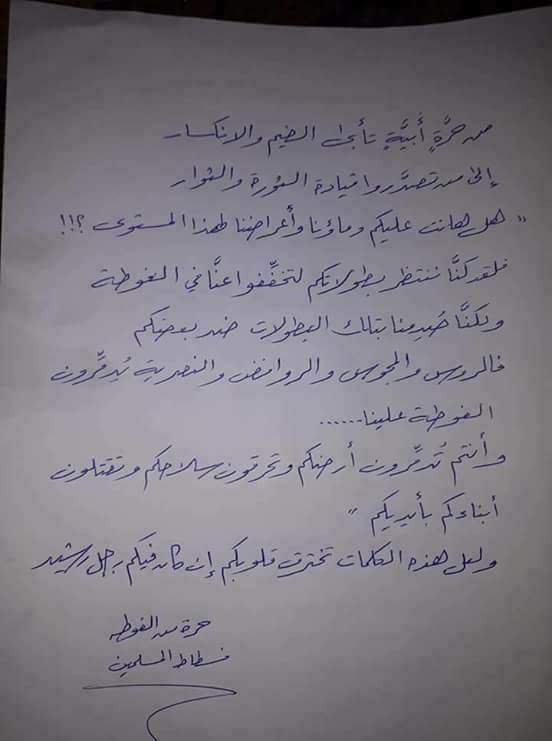 من حرَّةٍ أَبيَّةٍ تأبى الضيم والانكسار
إلى من تصدَّروا قيادة الثورة والثوار
" هل هانت عليكم دماؤنا وأعراضنا لهذا المستوى ؟!!
فلقد كنَّا ننتظر بطولاتكم لتخفِّفوا عنَّا في الغوطة
ولكنَّا صُدِمنا بتلك البطولات ضد بعضكم
فالروس والمجوس والروافض والنصيرية يُدمِّرون
الغوطة علينا......
وأنتم تُدمِّرون أرضكم وتحرقون سلاحكم وتقتلون
أبناءكم بأيديكم "
ولعل هذه الكلمات تخترق قلوبكم إن كان فيكم رجل رشيد
حرة من الغوطة
فسطاط المسلمين